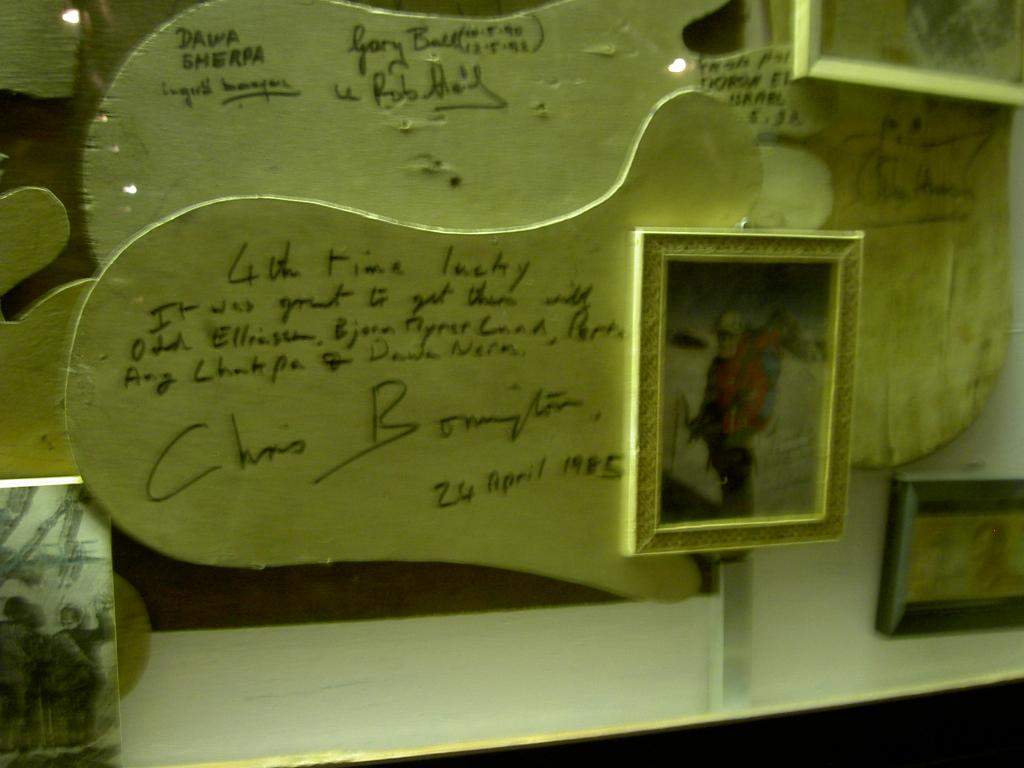 DAWA
SHERPA
Gary Ball (10.5.90)
12.5.92)
Rob Hall
ISRAEL
5.92
4th time lucky
It was great to get there with
Odd Eliassen, Bjorn Myrer Lund, Pert
Ang Lhakpa & Dawa Norbu.
Chris Bonington,
24 April 1985